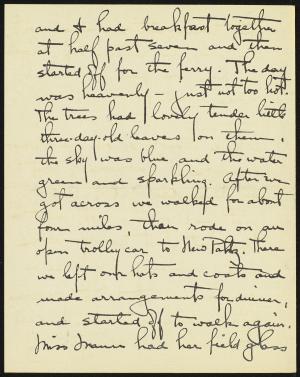 and I had breakfast together
at half past seven and then
started off for the ferry. The day
was heavenly – just not too hot.
The trees had lovely tender little
three-day-old leaves on them,
the sky was blue and the water
green and sparkling. After we
got across we walked for about
four miles, then rode on an
open trolley car to New Paltz. There
we left our hats and coats and
made arrangements for dinner,
and started off to walk again.
Miss Mann had her field glass